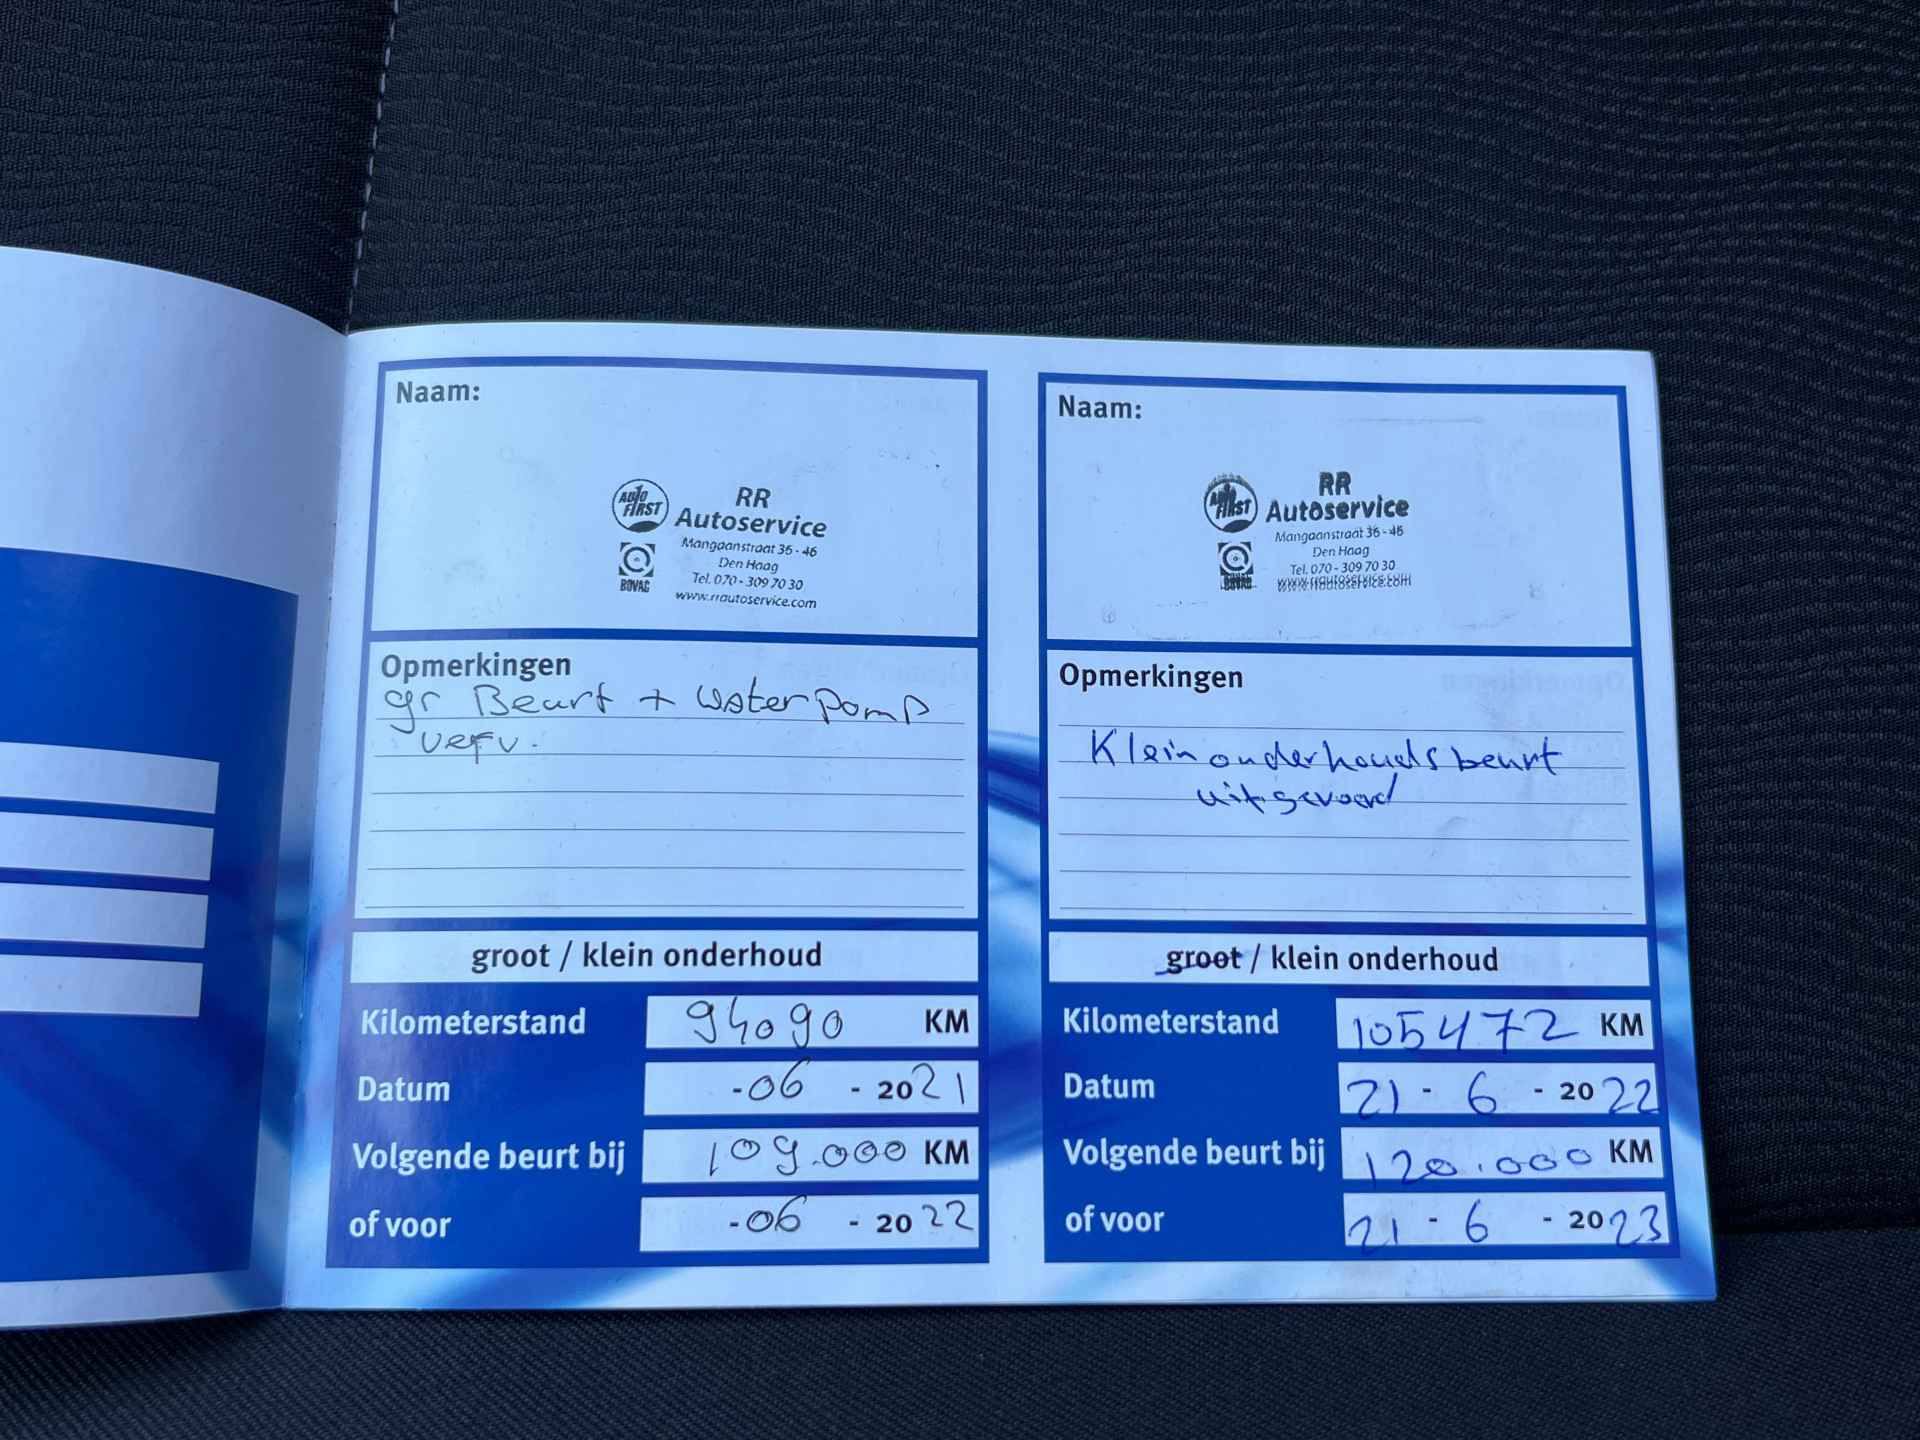 Naam:
AUTO
FIRST
BOVAG
RR
Autoservice
Mangaanstraat 36 - 46
Den Haag
Tel. 070 - 309 70 30
www.rrautoservice.com
Opmerkingen
gr Beurt + waterpomp
verv.
groot / klein onderhoud
Kilometerstand 94090 KM
Datum -06 - 2021
Volgende beurt bij 109.000 KM
of voor -06 - 2022
Naam:
AUTO
FIRST
BOVAG
RR
Autoservice
Mangaanstraat 36 - 46
Den Haag
Tel. 070 - 309 70 30
www.rrautoservice.com
Opmerkingen
Klein onderhoudsbeurt
uitgevoerd
groot / klein onderhoud
Kilometerstand 105472 KM
Datum 21 - 6 - 2022
Volgende beurt bij 120.000 KM
of voor 21 - 6 - 2023